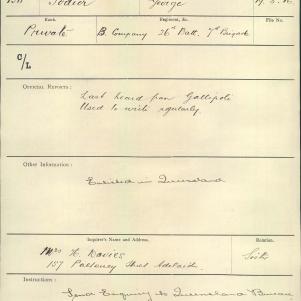 George
Rank. Regiment, &c. File No.
Private B. Company 26th Batt. 7th Brigade
C/L
OFFICIAL REPORTS:
Last heard from Gallipoli
Used to write regularly.
Other Information:
Enlisted in Queensland
Inquirer's Name and Address. Relation.
Mrs H. Davies
157 Pulteney Street Adelaide.
Instructions:
Send Enquiry to Queensland Bureau